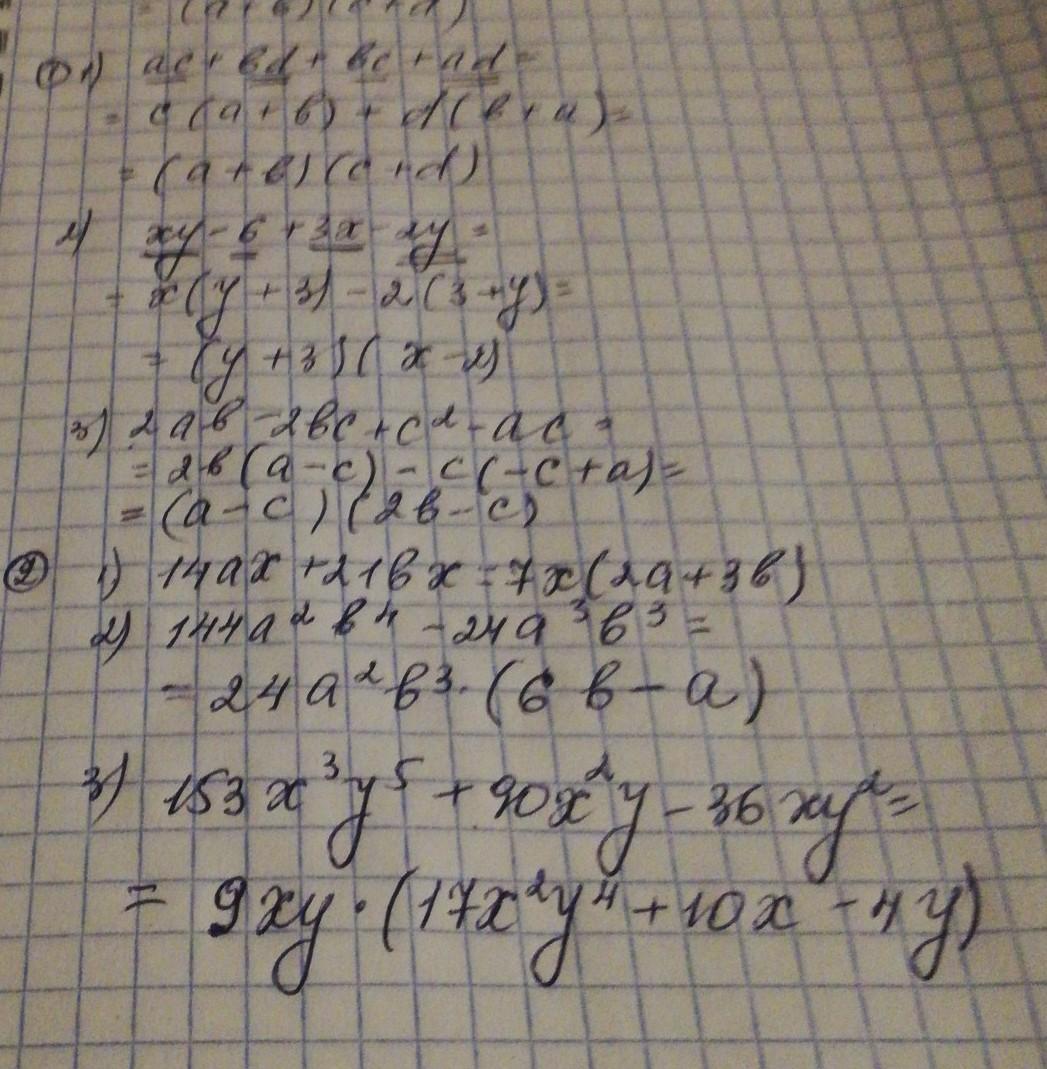 = (a+в)(c+d)
① 1) ac + вd + вc + ad =
= c(a+в) + d(в+a) =
= (a+в)(c+d)
2) xy - 6 + 3x - 2y =
= x(y+3) - 2(3+y) =
= (y+3)(x-2)
3) 2aв - 2вc + c² - ac =
= 2в(a-c) - c(-c+a) =
= (a-c)(2в-c)
② 1) 14ax + 21вx = 7x(2a+3в)
2) 144a²в⁴ - 24a³в³ =
= 24a²в³ · (6в - a)
3) 153x³y⁵ + 90x²y - 36xy² =
= 9xy · (17x²y⁴ + 10x - 4y)